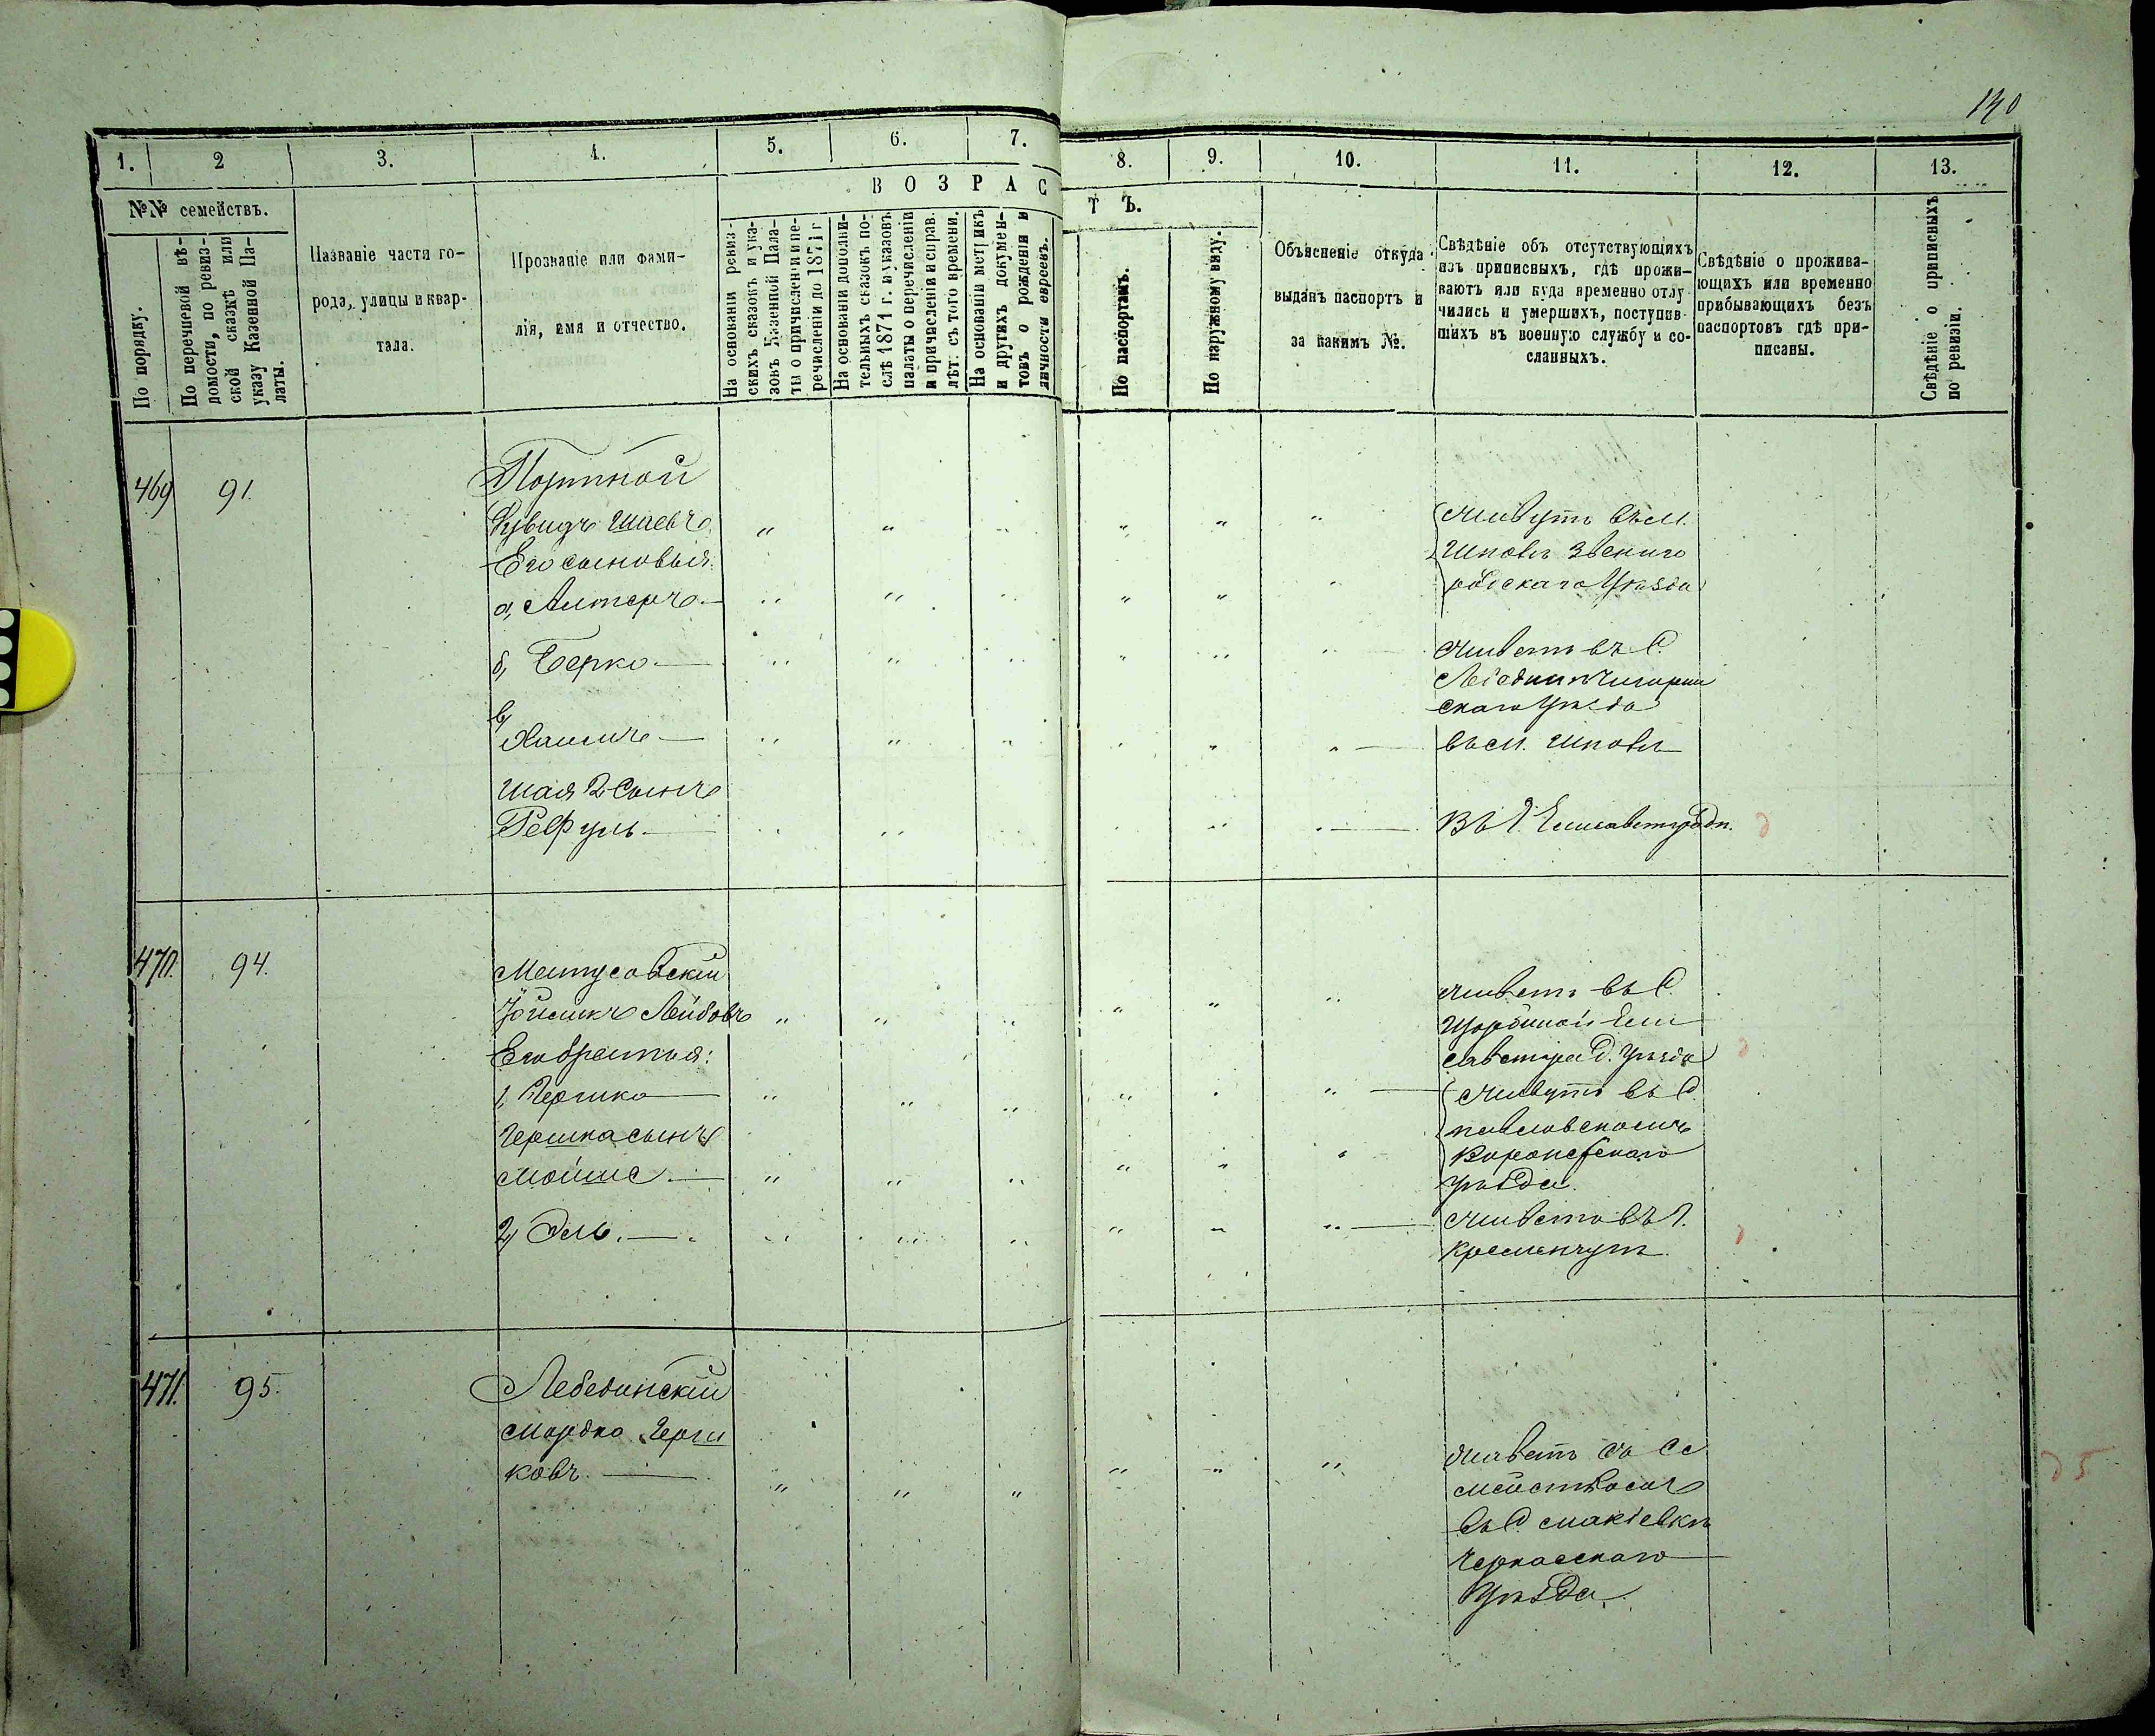 130
1. 2 3. 4. 5. 6. 7. 8. 9. 10. 11. 12. 13.
В О З Р А С Т Ъ.
№№ семействъ.
По порядку.
По перечневой вѣ-
домости, по ревиз-
ской сказкѣ или
указу Казенной Па-
латы.
Названіе части го-
рода, улицы и квар-
тала.
Прозваніе или фами-
лія, имя и отчество.
На основаніи ревиз-
скихъ сказокъ и ука-
зовъ Казенной Пала-
ты о причисленіи и пе-
речисленіи до 1871 г
На основаніи дополни-
тельныхъ сказокъ по-
слѣ 1871 г. и указовъ
палаты о перечисленіи
и причисленіи и справ.
лѣт: съ того времени.
На основаніи метрикъ
и другихъ докумен-
товъ о рожденіи и
личности евреевъ.
По паспортамъ.
По наружному виду.
Объясненіе откуда
выданъ паспортъ и
за какимъ №.
Свѣдѣніе объ отсутствующихъ
изъ приписныхъ, гдѣ прожи-
ваютъ или куда временно отлу-
чились и умершихъ, поступив-
шихъ въ военную службу и со-
сланныхъ.
Свѣдѣніе о прожива-
ющихъ или временно
прибывающихъ безъ
паспортовъ гдѣ при-
писаны.
Свѣдѣніе о приписныхъ
по ревизіи.
469 91.
Портной
Шаевъ
Его сыновья:
а, Алтеръ
б, Берко
в,
Хаимъ
Шая 2 сынъ
Рефуль
Живутъ въ м.
Шполѣ Звениго
родскаго Уѣзда
Живетъ въ С.
Чигирин
скаго Уѣзда
въ м. Шполѣ
Въ Г. Елисаветградѣ.
470. 94.
Матусовскій
Лейбовъ
Его братья:
1, Гершко
Гершка сынъ
Мойше
2, Эль.
Живетъ въ С.
Ели
саветград. Уѣзда
Живутъ въ С.
Павловскомъ
Уѣзда.
Живетъ въ Г.
Кременчугѣ.
471. 95.
Лебединскій
Мордко Герш
ковъ.
Живетъ съ Се
мействомъ
въ С. Макіевкѣ
Черкасскаго
Уѣзда.
д 5